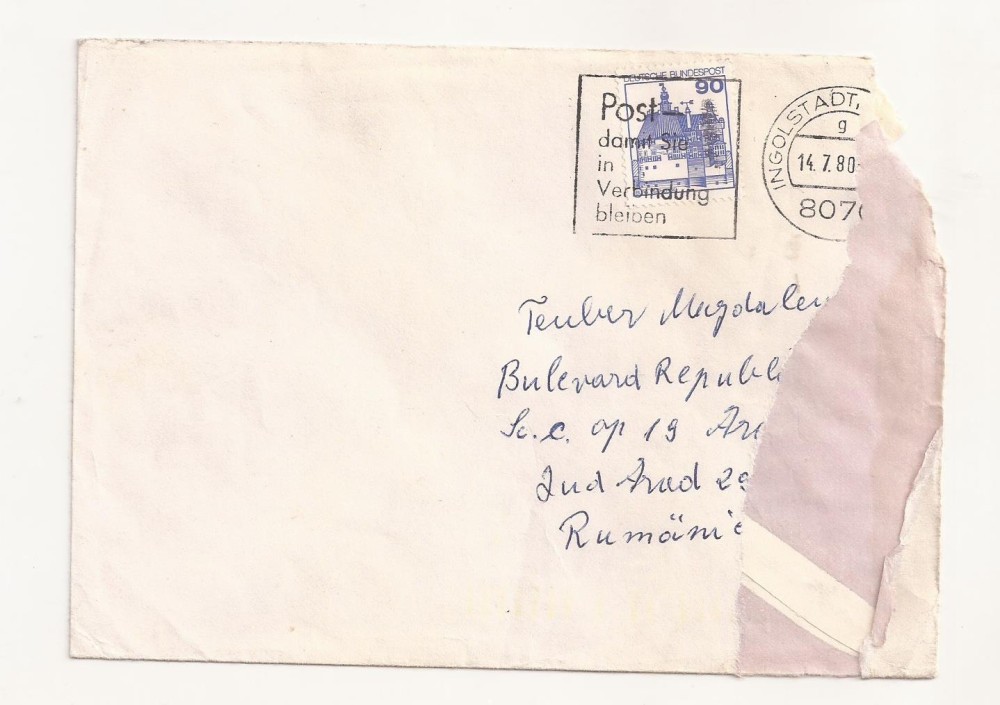 DEUTSCHE BUNDESPOST
90
Post-
damit Sie
in
Verbindung
bleiben
INGOLSTADT,
g
14.7.80-
807
Teuber Magdalen
Bulevard Republi
Sc. C. ap 19 Ar
Jud Arad 29
Rumänie